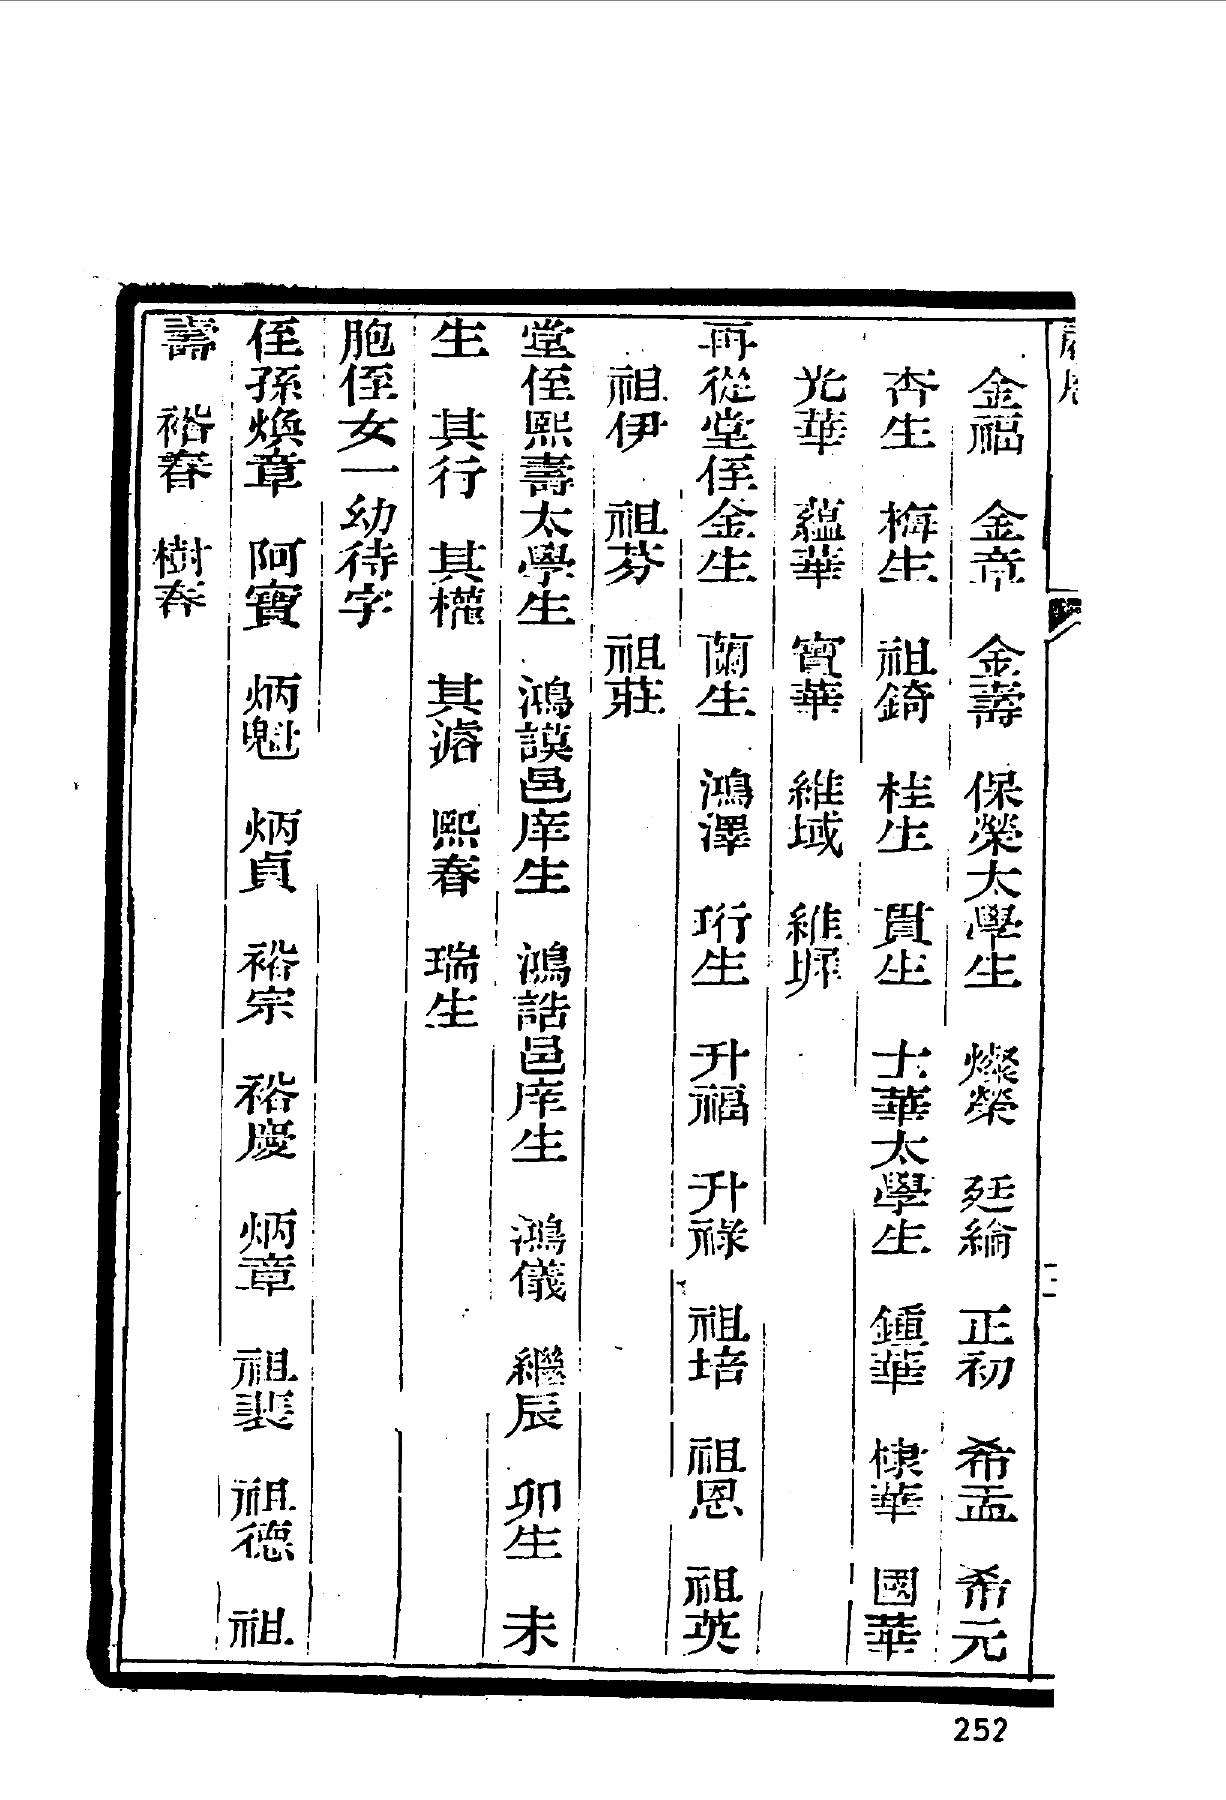 金福　金章　金壽　保榮太學生　燦榮　廷綸　正初　希孟　希元
杏生　梅生　祖錡　桂生　貫生　士華太學生　鍾華　棣華　國華
光華　蘊華　寶華　維域　維墀
再從堂侄金生　蘭生　鴻澤　珩生　升福　升祿　祖培　祖恩　祖英
祖伊　祖芬　祖莊
堂侄熙壽太學生　鴻謨邑庠生　鴻誥邑庠生　鴻儀　繼辰　卯生　未
生　其行　其權　其濬　熙春　瑞生
胞侄女一幼待字
侄孫煥章　阿寶　炳魁　炳貞　裕宗　裕慶　炳章　祖裴　祖德　祖
壽　裕春　樹春
252